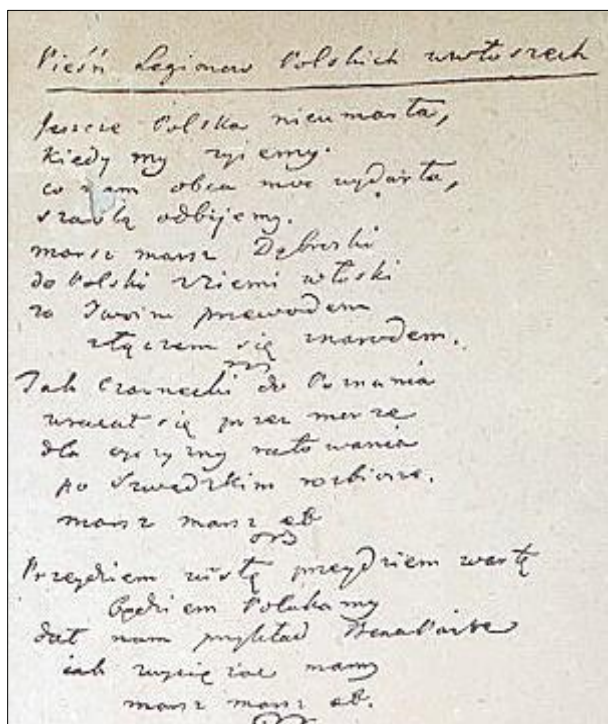 Pieśń Legionow Polskich wewłoszech
Jeszcze Polska nieumarła,
kiedy my zyiemy.
co nam obca moc wydarła,
szablą odbijemy.
marsz marsz Dąbroski
do Polski zziemi włoski
za Twoim przewodem
złączem się znarodem.
Jak Czarnecki do Poznania
wracał się przez morze
dla oyczyzny ratowania
po Szwedzkim rozbiorze.
marsz marsz etc
Przeydziem wisłę przeydziem wartę
będziem Polakamy
dał nam przykład Bonaparte
iak zwyciężac mamy
marsz marsz etc.